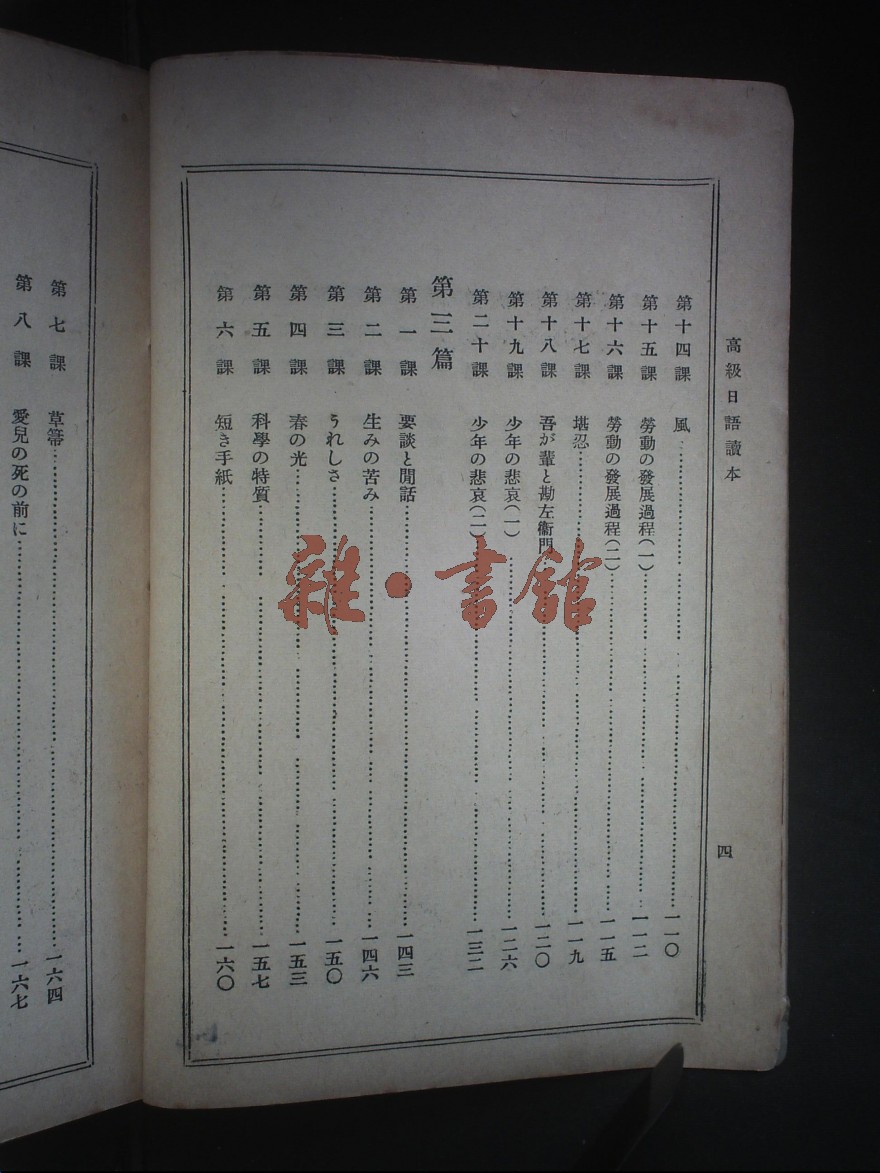 高級日語讀本
四
第十四課 風 一一〇
第十五課 勞動の發展過程(一) 一一二
第十六課 勞動の發展過程(二) 一一五
第十七課 堪忍 一一九
第十八課 吾が輩と勘左衞門 一二〇
第十九課 少年の悲哀(一) 一二六
第二十課 少年の悲哀(二) 一三二
第三篇
第一課 要談と閒話 一四三
第二課 生みの苦み 一四六
第三課 うれしさ 一五〇
第四課 春の光 一五三
第五課 科學の特質 一五七
第六課 短き手紙 一六〇
第七課 草箒 一六四
第八課 愛兒の死の前に 一六七
雜·書館